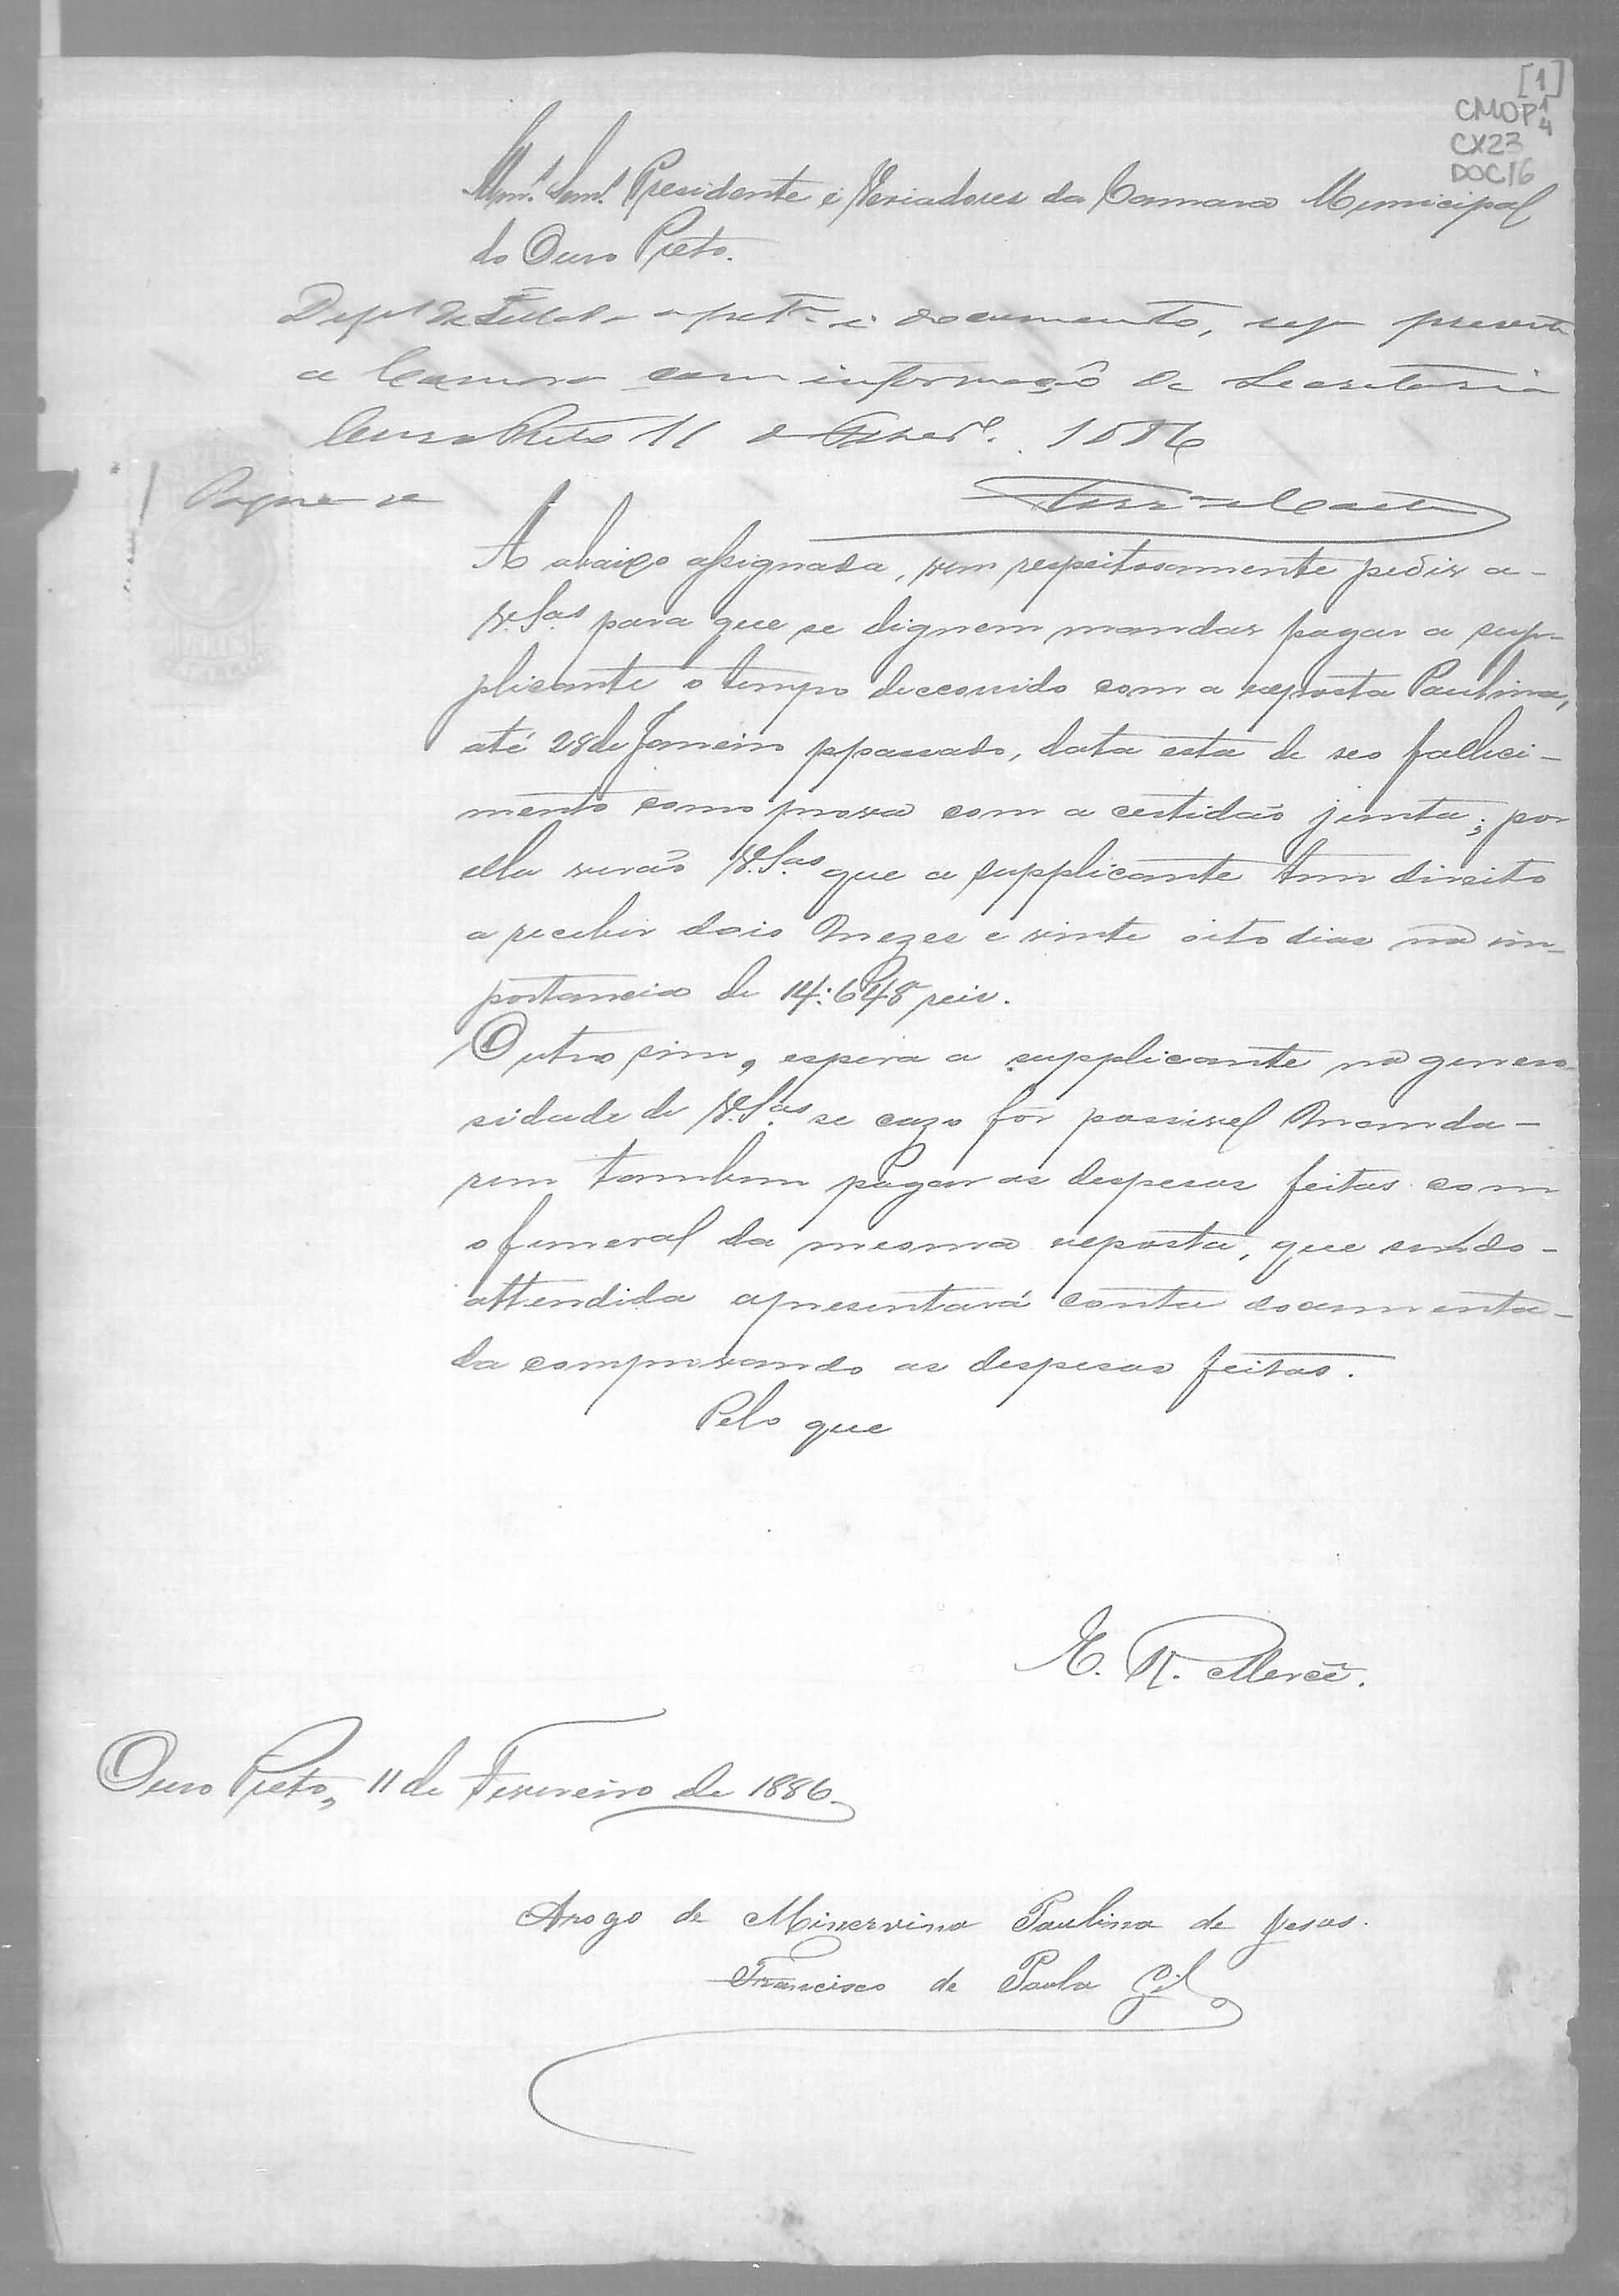 [1]
CMOP 1
4
CX23
DOC16
Presidente e Veriadores da Cammara Municipal
do Ouro Preto.
Dep.s de a pet.m e documento, seja presente
a Camara com informação da Secretaria
Ouro Preto 11 de Fever.o 1886
Pague-se
A abaixo assignada, vem respeitosamente pedir a-
V.Sas. para que se dignem mandar pagar a sup-
plicante o tempo deccorrido com a exposta Paulina,
até 28 de Janeiro ppassado, data esta de seo falleci-
mento como prova com a certidão junta; por
ella verão V.Sas. que a supplicante tem direito
a receber dois mezes e vinte oito dias na im-
portancia de 14:648 reis.
Outro sim, espera a supplicante na genero
sidade de V.Sas. se cazo for possivel manda-
rem tambem pagar as despesas feitas com
o funeral da mesma exposta, que sendo-
attendida apresentará conta documenta-
da comprovando as despesas feitas.
Pelo que
E. R. Mercê.
Ouro Preto, 11 de Fevereiro de 1886.
Arogo de Minervina Paulina de Jesus.
Francisco de Paula Gil